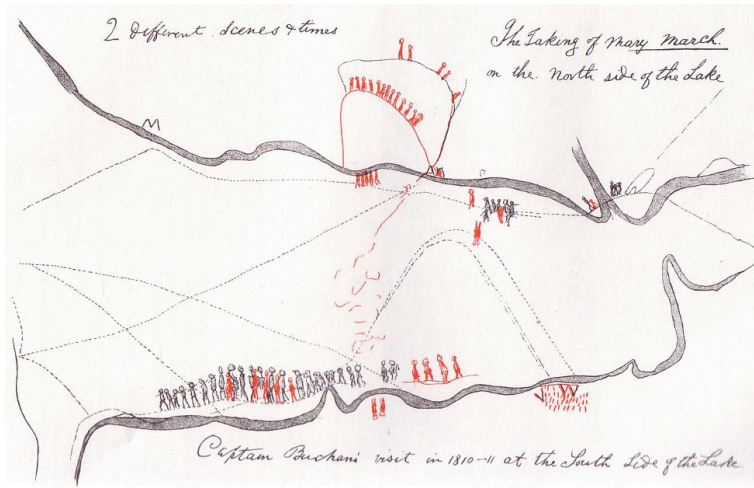 2 Different Scenes & times
The Taking of Mary March.
on the North side of the Lake
Captain Buchan's visit in 1810-11 at the South Side of the Lake